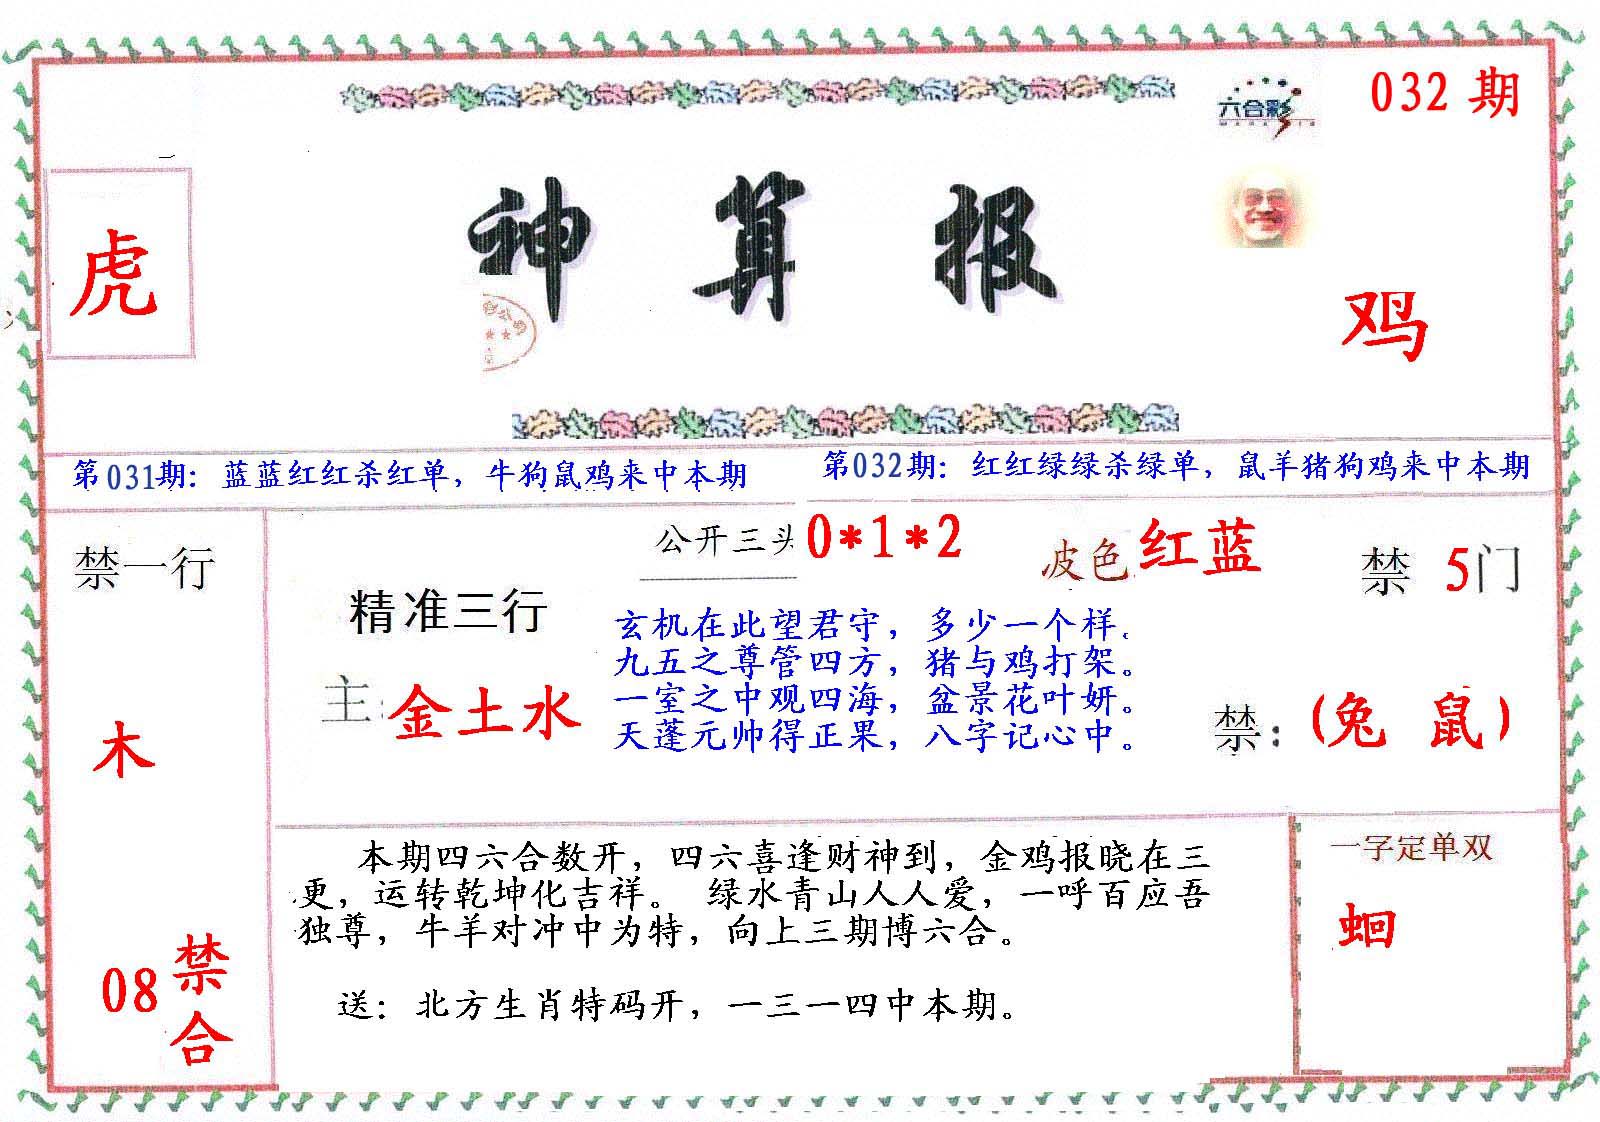 032 期
六合彩
虎
神 算 报
鸡
第031期：蓝蓝红红杀红单，牛狗鼠鸡来中本期
第032期：红红绿绿杀绿单，鼠羊猪狗鸡来中本期
禁一行
木
08 禁合
精准三行
主: 金土水
公开三头 0*1*2
波色 红蓝
禁 5门
玄机在此望君守，多少一个样。
九五之尊管四方，猪与鸡打架。
一室之中观四海，盆景花叶妍。
天蓬元帅得正果，八字记心中。
禁：(兔 鼠)
本期四六合数开，四六喜逢财神到，金鸡报晓在三
更，运转乾坤化吉祥。 绿水青山人人爱，一呼百应吾
独尊，牛羊对冲中为特，向上三期博六合。
送：北方生肖特码开，一三一四中本期。
一字定单双
蛔